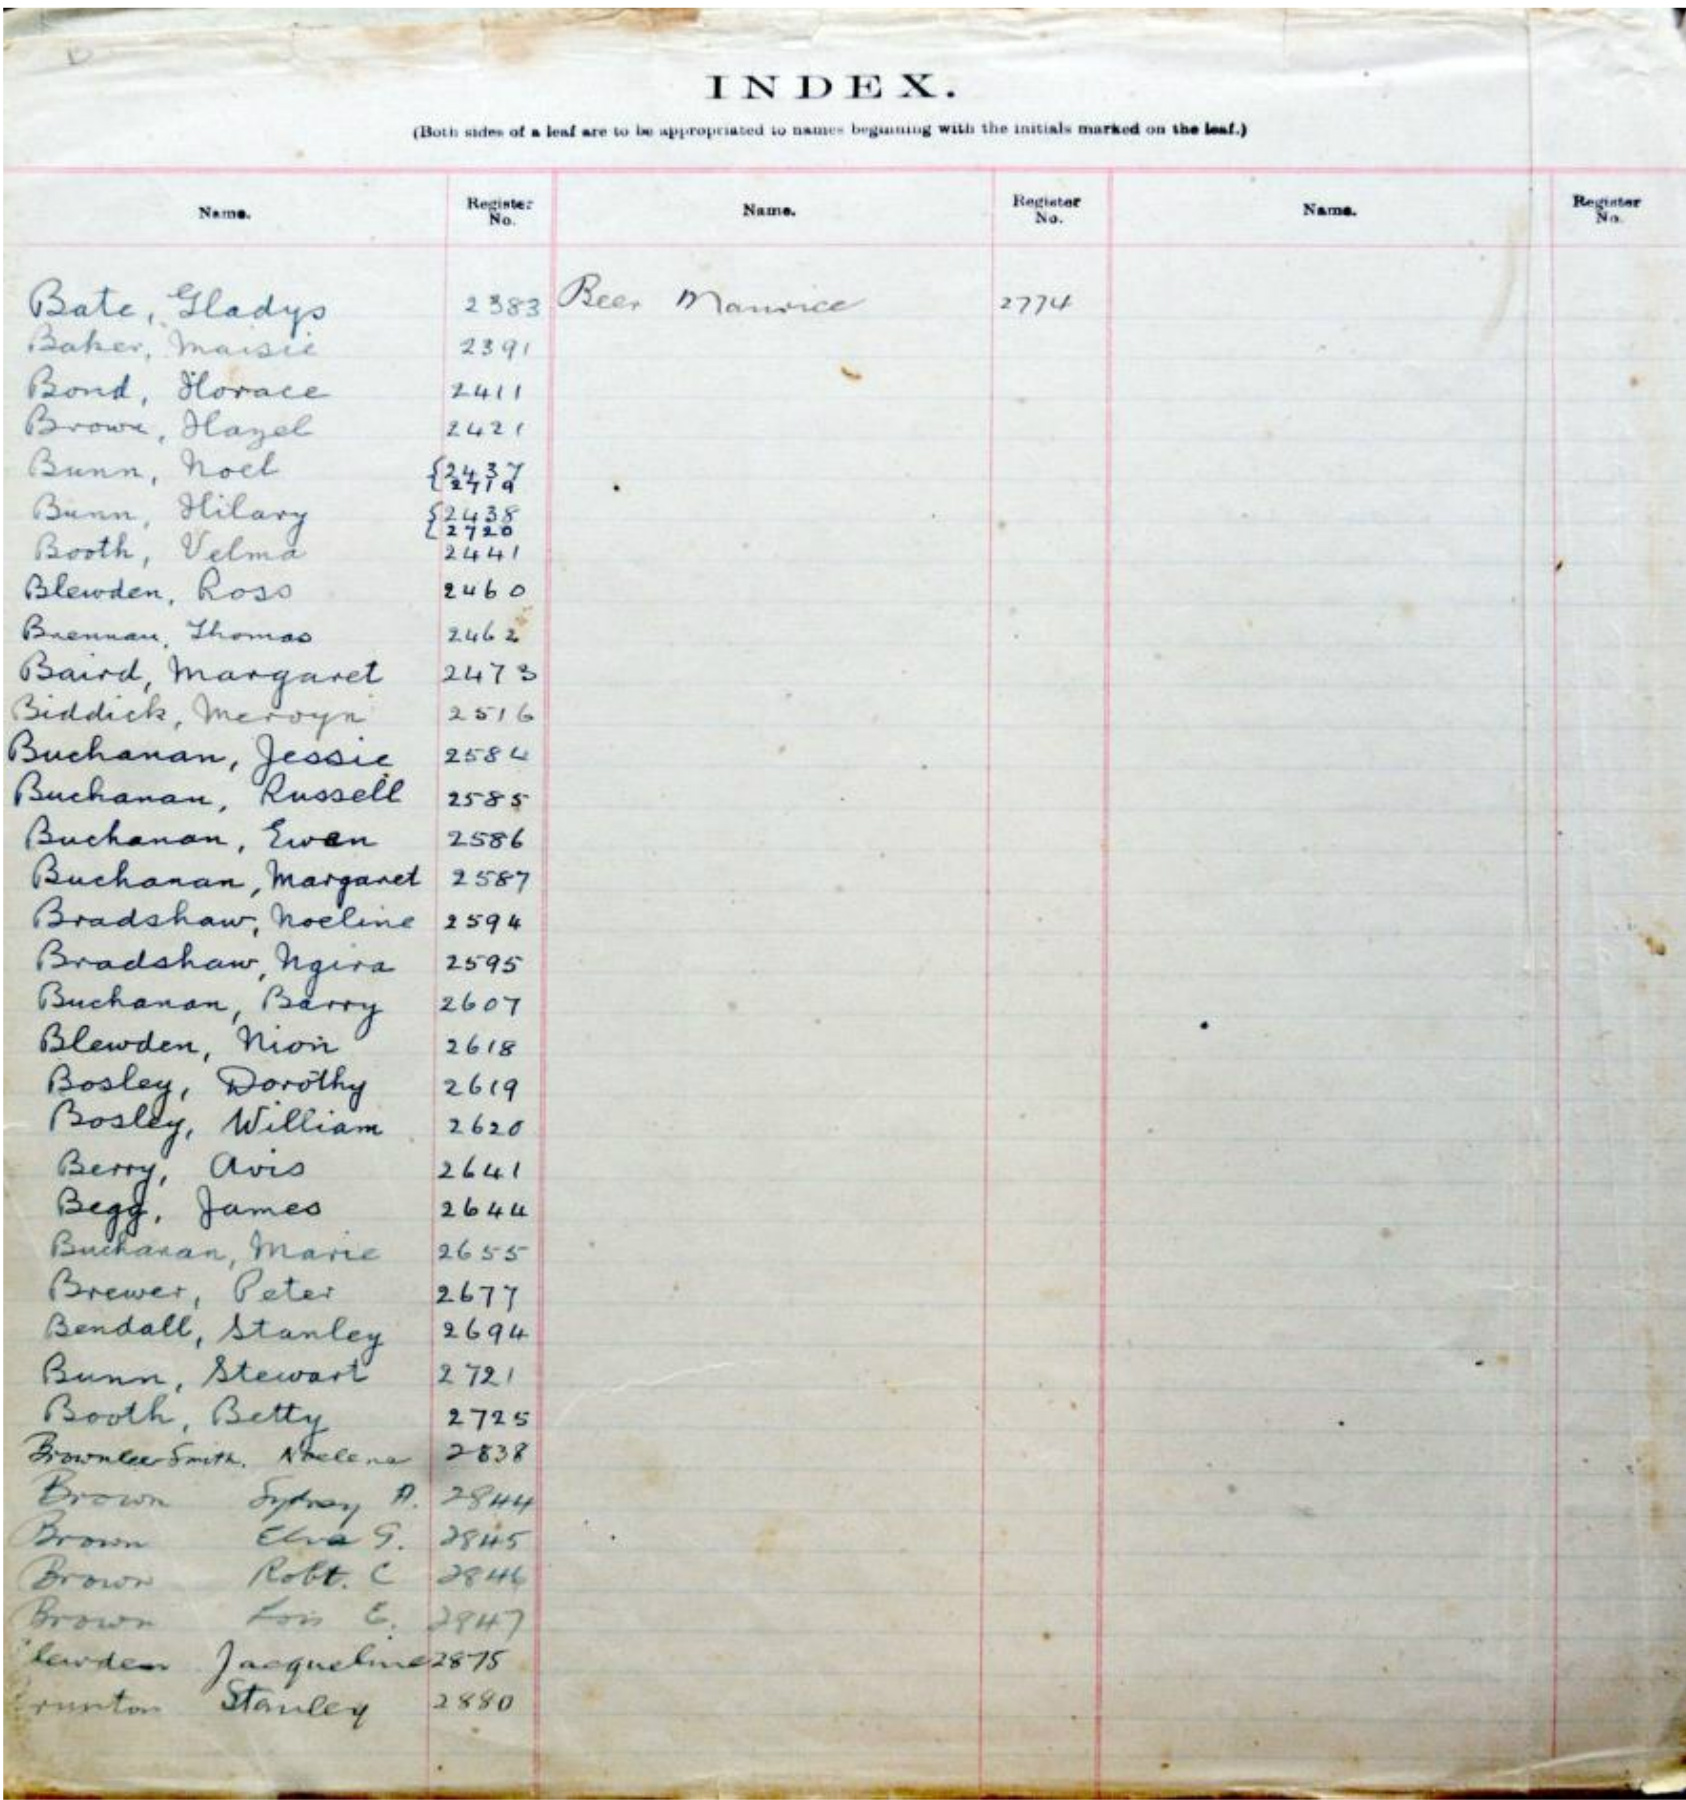 INDEX.
(Both sides of a leaf are to be appropriated to names beginning with the initials marked on the leaf.)
Name. Register No. Name. Register No. Name. Register No.
Bate, Gladys 2383 Beer Maurice 2774
Baker, Maisie 2391
Bond, Horace 2411
Brown, Hazel 2421
Bunn, Noel {2437
2719
Bunn, Hilary {2438
2720
Booth, Velma 2441
Blewden, Ross 2460
Brennan, Thomas 2462
Baird, Margaret 2473
Biddick, Mervyn 2516
Buchanan, Jessie 2584
Buchanan, Russell 2585
Buchanan, Ewen 2586
Buchanan, Margaret 2587
Bradshaw, Noeline 2594
Bradshaw, Ngira 2595
Buchanan, Barry 2607
Blewden, Nion 2618
Bosley, Dorothy 2619
Bosley, William 2620
Berry, Avis 2641
Begg, James 2644
Buchanan, Marie 2655
Brewer, Peter 2677
Bendall, Stanley 2694
Bunn, Stewart 2721
Booth, Betty 2725
Brownlee-Smith, 2838
Brown Sydney A. 2844
Brown Elva G. 2845
Brown Robt. C 2846
Brown Lois E. 2847
lewden Jacqueline 2875
runton Stanley 2880